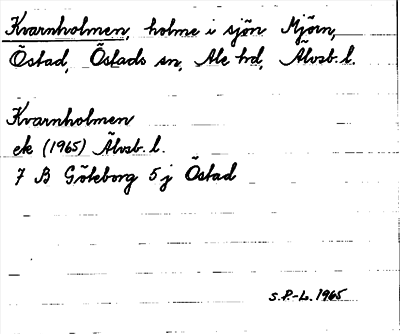 Kvarnholmen, holme i sjön Mjörn,
Östad, Östads sn, Ale hd, Älvsb. l.
Kvarnholmen
ek (1965) Älvsb. l.
7 B Göteborg 5 j Östad
S.P.-L. 1965